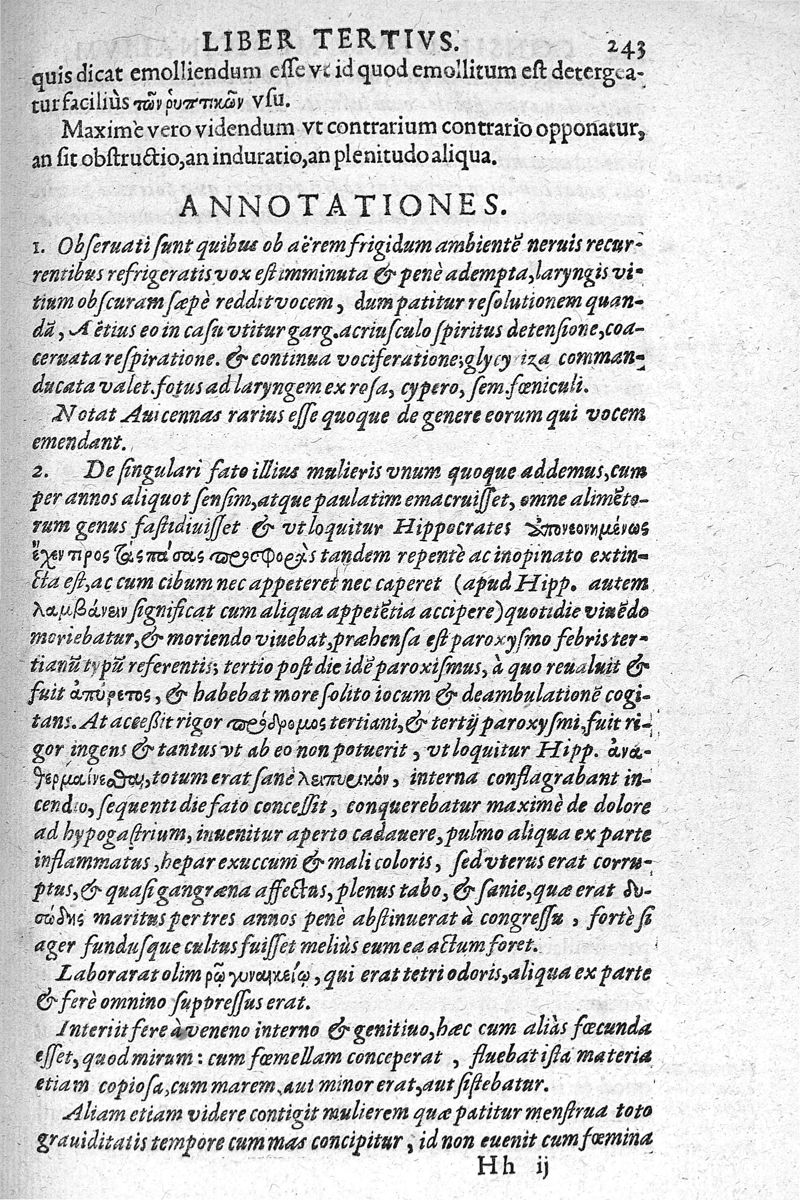 LIBER TERTIVS. 243
quis dicat emolliendum esse vt id quod emollitum est detergea-
tur faciliùs τῶν ῥυπτικῶν vsu.
Maximè vero videndum vt contrarium contrario opponatur,
an sit obstructio, an induratio, an plenitudo aliqua.
ANNOTATIONES.
1. Obseruati sunt quibus ob aërem frigidum ambientē neruis recur-
rentibus refrigeratis vox est imminuta & penè adempta, laryngis vi-
tium obscuram sæpè reddit vocem, dum patitur resolutionem quan-
dā, Aëtius eo in casu vtitur garg. acriusculo spiritus detensione, coa-
ceruata respiratione. & continua vociferatione; glycyriza comman-
ducata valet. fotus ad laryngem ex rosa, cypero, sem. fœniculi.
Notat Auicennas rarius esse quoque de genere eorum qui vocem
emendant.
2. De singulari fato illius mulieris vnum quoque addemus, cum
per annos aliquot sensim, atque paulatim emacruisset, omne alimēto-
rum genus fastidiuisset & vt loquitur Hippocrates ἀπονεονημένως
ἔχειν προς τὰς πάσας προσφορὰς tandem repentè ac inopinato extin-
cta est, ac cum cibum nec appeteret nec caperet (apud Hipp. autem
λαμβάνειν significat cum aliqua appetētia accipere) quotidie viuēdo
moriebatur, & moriendo viuebat, præhensa est paroxysmo febris ter-
tianū typū referentis; tertio post die idē paroxismus, à quo reualuit &
fuit ἀπύρετος, & habebat more solito iocum & deambulationē cogi-
tans. At accessit rigor πρόδρομος tertiani, & tertij paroxysmi, fuit ri-
gor ingens & tantus vt ab eo non potuerit, vt loquitur Hipp. ἀνα-
θερμαίνεσθαι, totum erat sanè λειπυρικόν, interna conflagrabant in-
cendio, sequenti die fato concessit, conquerebatur maximè de dolore
ad hypogastrium, inuenitur aperto cadauere, pulmo aliqua ex parte
inflammatus, hepar exuccum & mali coloris, sed vterus erat corru-
ptus, & quasi gangræna affectus, plenus tabo, & sanie, quæ erat δυ-
σώδης maritus per tres annos penè abstinuerat à congressu, fortè si
ager fundusque cultus fuisset meliùs eum ea actum foret.
Laborarat olim ρῷ γυναικείῳ, qui erat tetri odoris, aliqua ex parte
& ferè omnino suppressus erat.
Interiit fere à veneno interno & genitiuo, hæc cum aliàs fœcunda
esset, quod mirum: cum fœmellam conceperat, fluebat ista materia
etiam copiosa, cum marem, aut minor erat, aut sistebatur.
Aliam etiam videre contigit mulierem quæ patitur menstrua toto
grauiditatis tempore cum mas concipitur, id non euenit cum fœmina
Hh ij